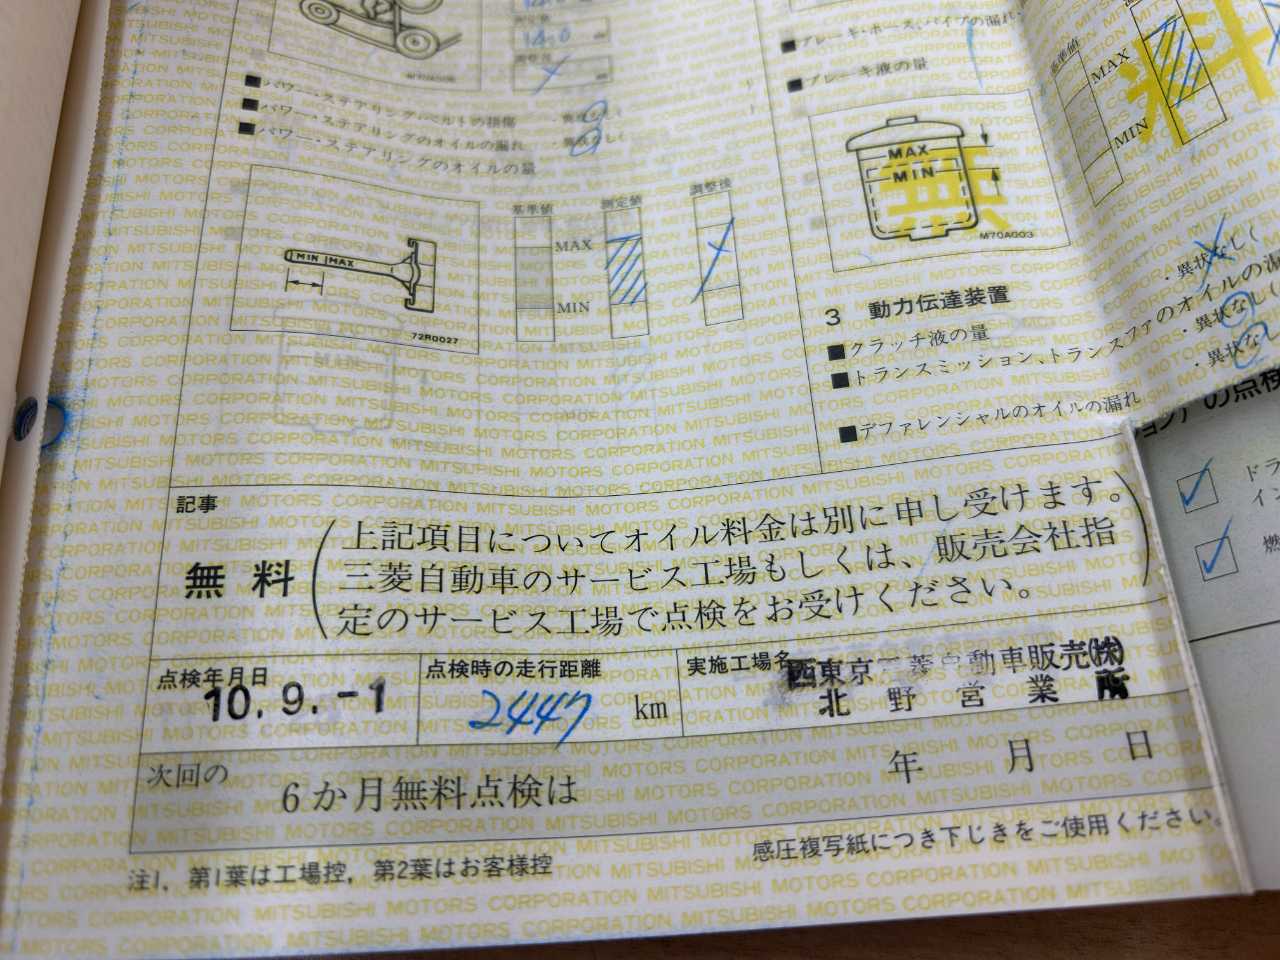 14.0
調整後
M70A006
■パワー・ステアリング・ベルトの損傷
■パワー・ステアリングのオイルの漏れ
■パワー・ステアリングのオイルの量
MIN MAX
72R0027
基準値 測定値 調整後
MAX
MIN
■ブレーキ・ホース、パイプの漏れ
■ブレーキ液の量
MAX
MIN
M70A003
無
基準値
MAX
MIN
料
3 動力伝達装置
■クラッチ液の量
■トランスミッション、トランスファのオイルの漏
■デファレンシャルのオイルの漏れ
・異状なし
・異状なし
・異状なし
の点検
ドラ
イン
燃
記事
無料
上記項目についてオイル料金は別に申し受けます。
三菱自動車のサービス工場もしくは、販売会社指
定のサービス工場で点検をお受けください。
点検年月日
10.9.-1
点検時の走行距離
2447 km
実施工場名
西東京三菱自動車販売(株)
北野営業所
次回の
6か月無料点検は 年 月 日
注1, 第1葉は工場控, 第2葉はお客様控
感圧複写紙につき下じきをご使用ください。
MITSUBISHI MOTORS CORPORATION